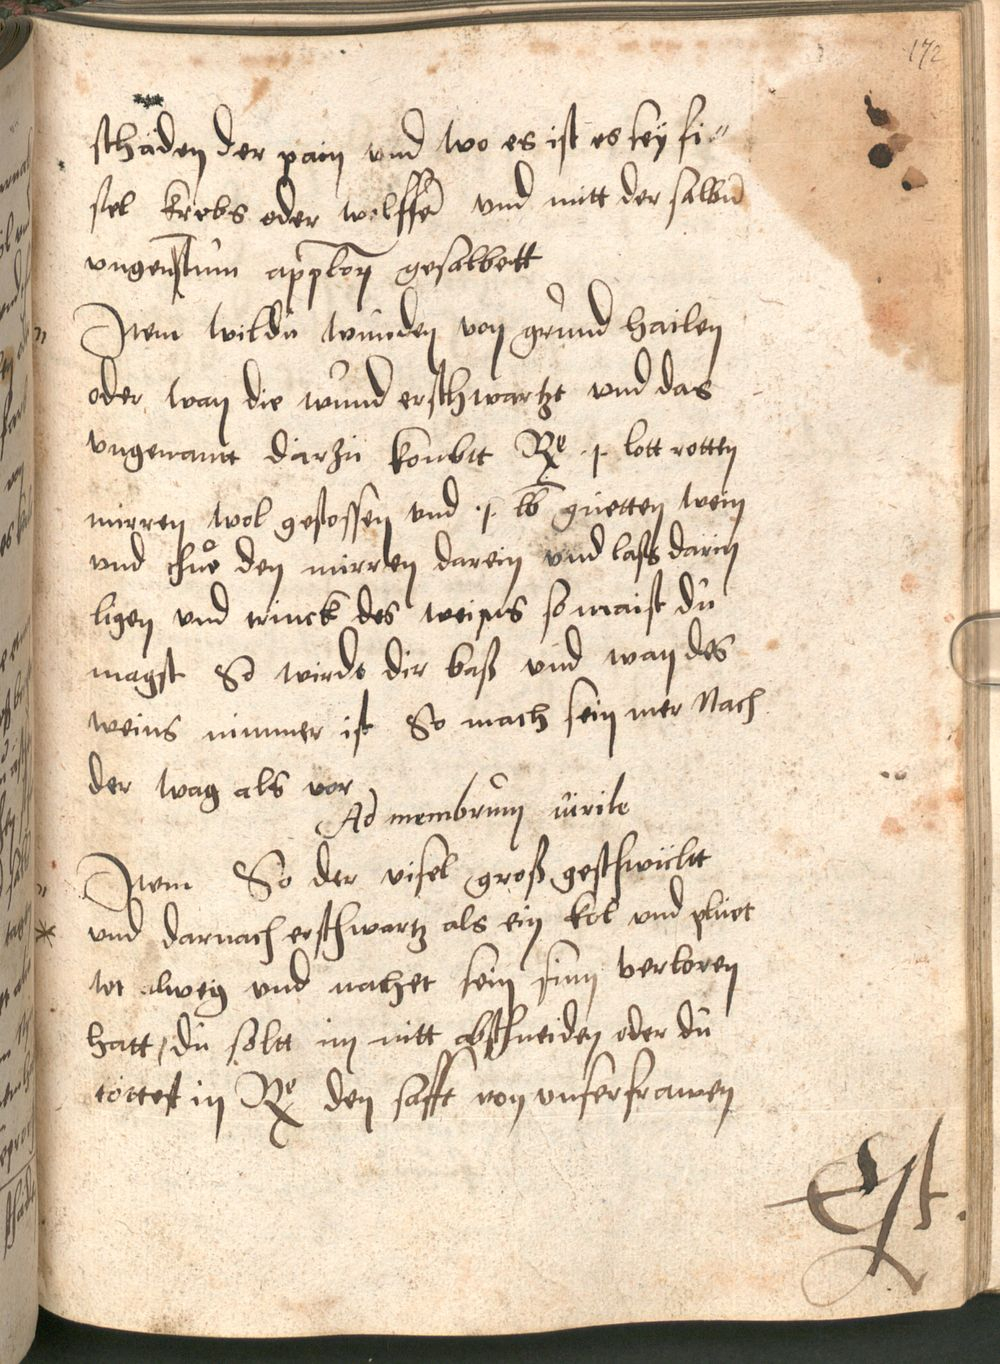 172
schäden der pain vnd wo es ist es sey fi„
stel krebs oder wolffe vnd mitt der salbn̄
vngentum applon gesalbett
Item wildu wunden von grund hailen
oder wan die wund erschwartzt vnd das
vngenantt darzu kombtt Re ·j· lott rotten
mirren wol gestossen vnd ·j· lb guetten wein
vnd thue den mirren darein vnd lass darin
ligen vnd trinck des weins so maist du
magst So wirdt dir bass vnd wan des
weins nimmer ist So mach sein mer Nach
der wag als vor
Ad membrum uirile
Item So der visel gross geschwilltt
vnd darnach erschwartz als ein kol vnd pluet
tet alweg vnd nachet sein sinn verloren
hatt, du soltt im nitt abschneiden oder du
tottest in Re den safft von vnserfrawen